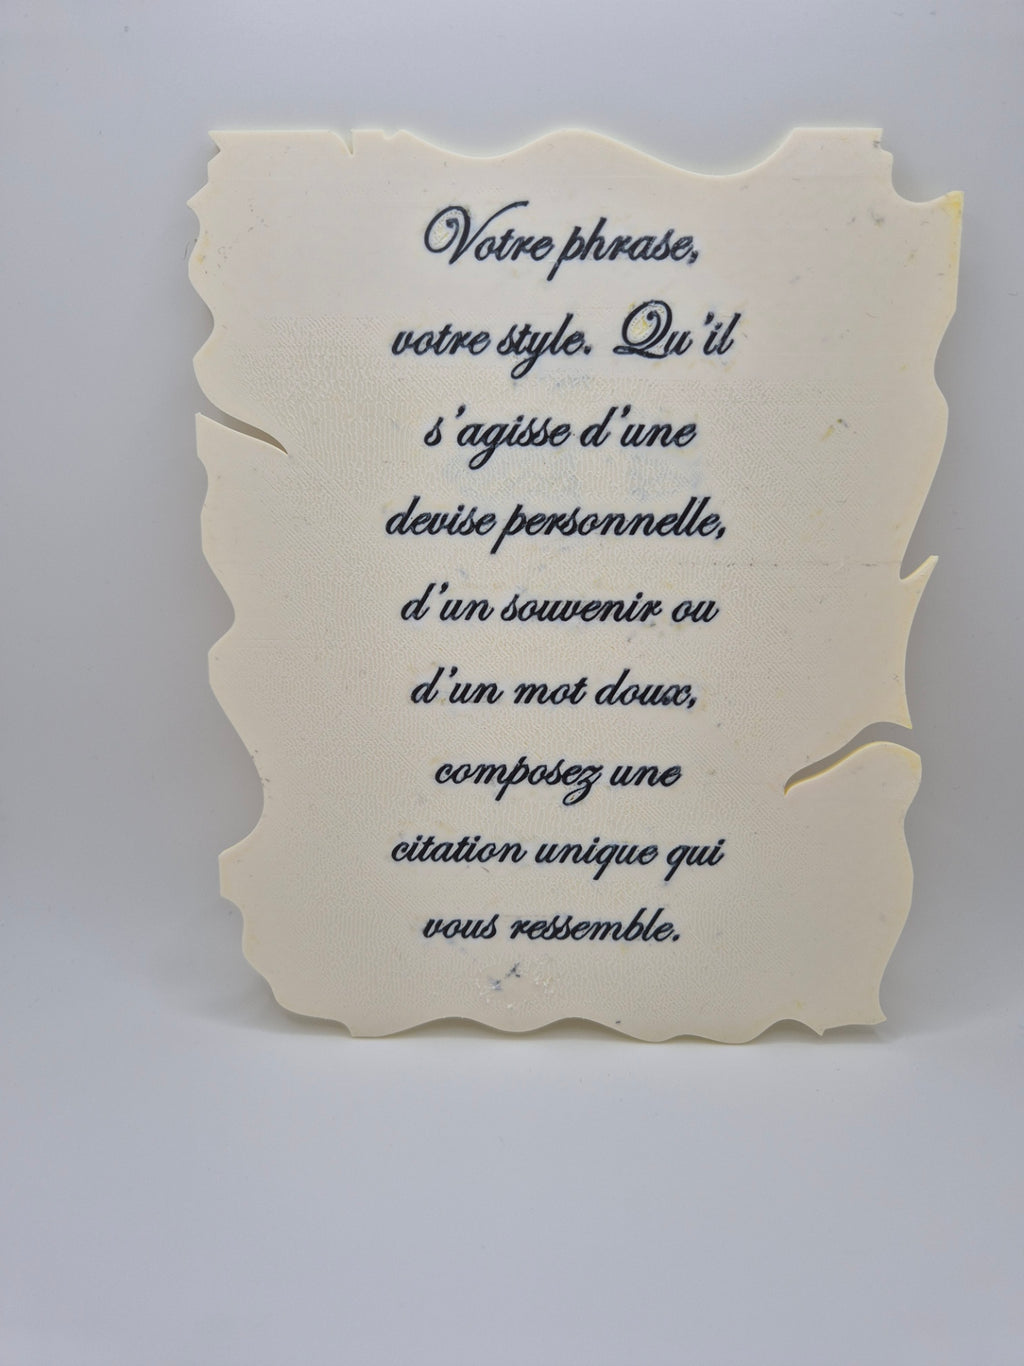 Votre phrase,
votre style. Qu'il
s'agisse d'une
devise personnelle,
d'un souvenir ou
d'un mot doux,
composez une
citation unique qui
vous ressemble.